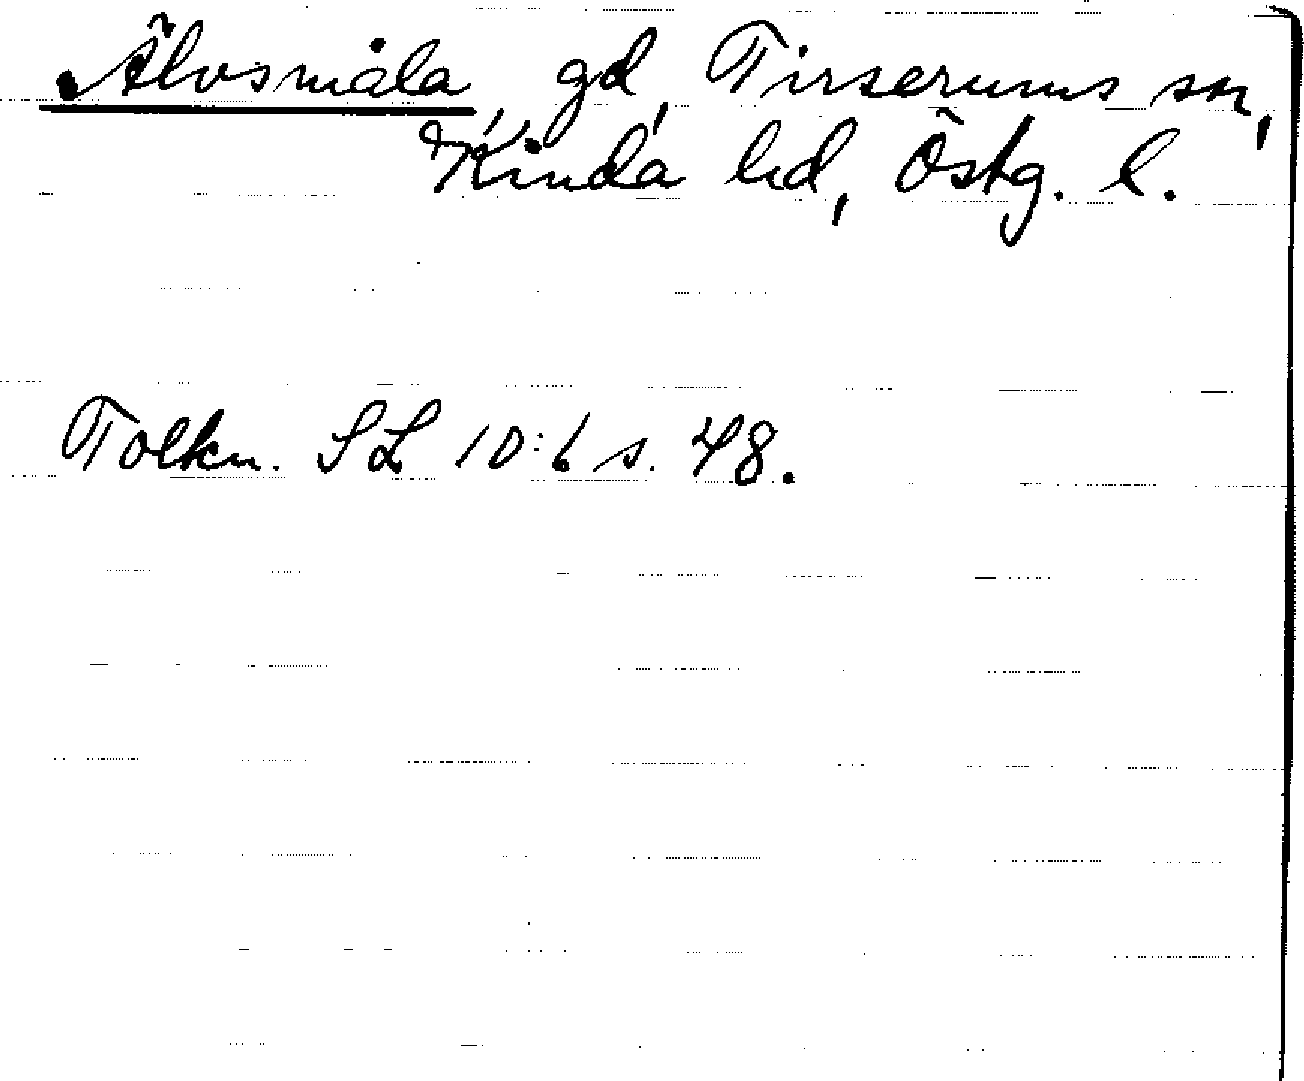 Älvsmåla, gd, Tirserums sn,
Kinda hd, Östg. l.
Tolkn. SL 10:6 s. 48.